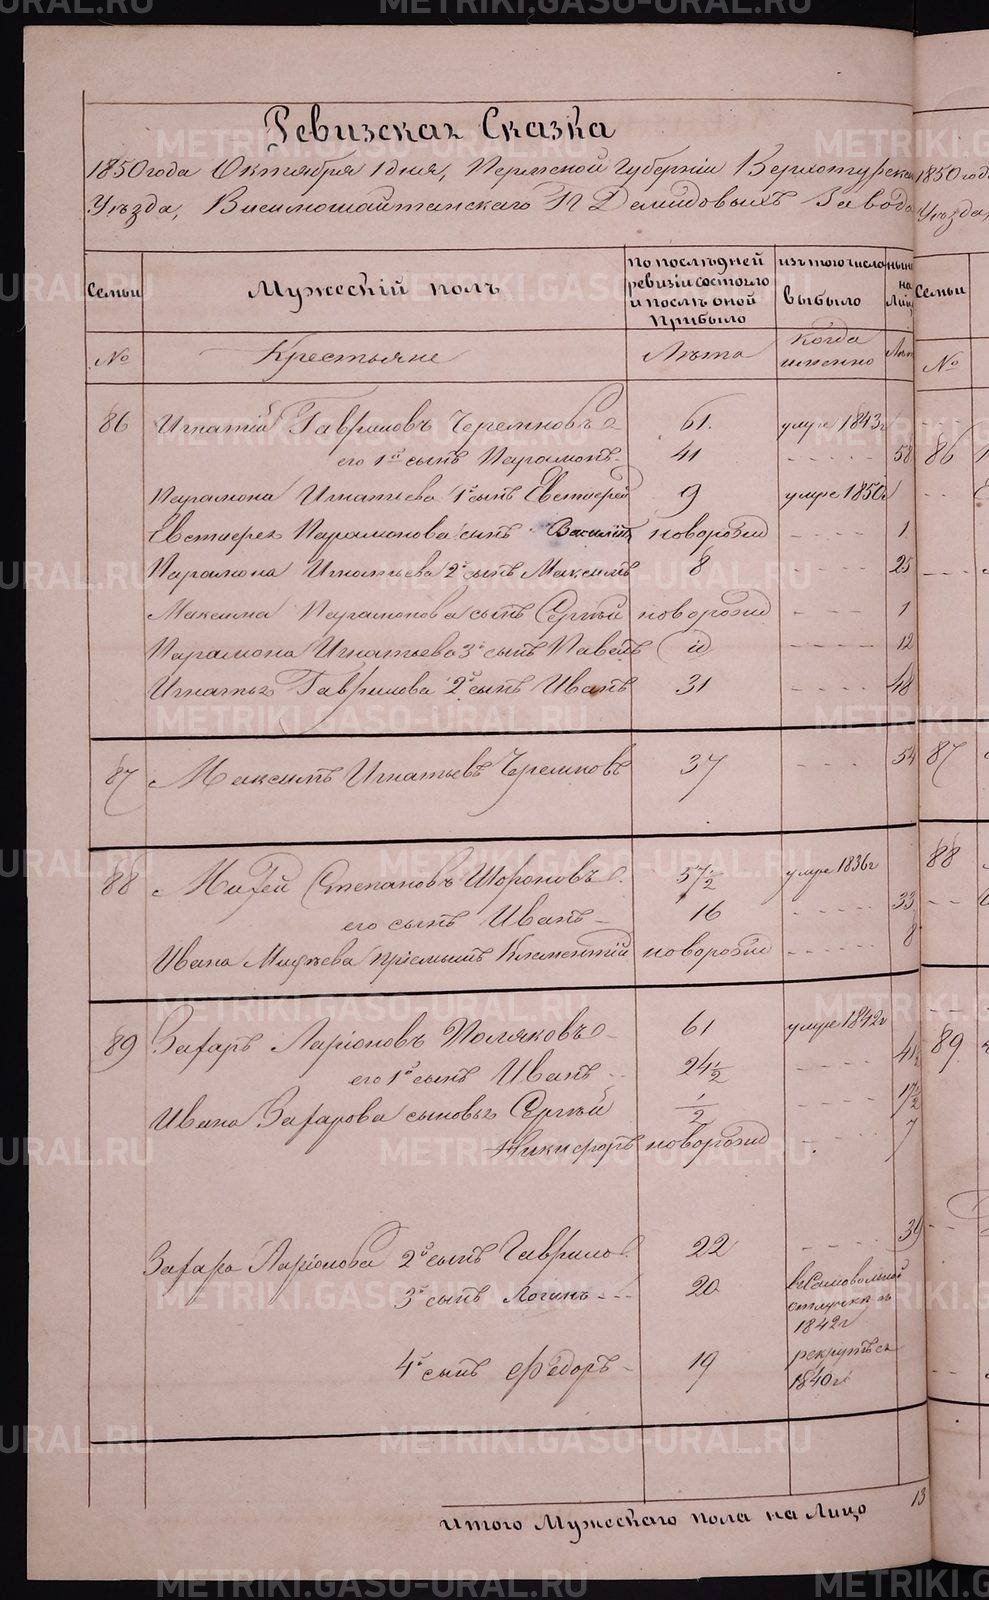 Ревизская Сказка
1850 года Октября 1 дня, Пермской Губернiи Верхотурскаго
Уѣзда, Висимошайтанскаго П Демидовыхъ Завода
Семьи
Мужескiй полъ
по послѣдней
ревизiи состояло
и послѣ оной
прибыло
изъ того числа
выбыло
ныне
на
Лицо
№
Крестьяне
Лѣта
когда
именно
Лѣта
86 Игнатiй Гавриловъ Черемновъ 61. умре 1843г
его 1й сынъ Парамонъ 41 58
Парамона Игнатьева 1й сынъ Евстигней 9 умре 1850г
Парамонова сынъ Василiй новорожд 1
Парамона Игнатьева 2й сынъ Максимъ 8 25
Максима Парамонова сынъ Сергѣй новорожд 1
Парамона Игнатьева 3й сынъ Павелъ 12
Игнатья Гаврилова 2й сынъ Иванъ 31 48
87 Максимъ Игнатьевъ Черемновъ 37 54
88 Мифей Степановъ Шороновъ 57½ умре 1836г
его сынъ Иванъ 16 33
Ивана Мифѣева прiемышъ Клементiй новорожд 8
89 Захаръ Ларiоновъ Поляковъ 61 умре 1842г
его 1й сынъ Иванъ 24½ 41½
Ивана Захарова сыновья Сергѣй ½ 17½
Никифоръ новорожд 7
Захара Ларiонова 2й сынъ Гаврило 22 39
3й сынъ Логинъ 20 въ самовольной
отлучкѣ съ
1842г
4й сынъ Федоръ 19 рекрутъ съ
1840г
итого Мужескаго пола на Лицо 13
1850 года
Уѣзда,
Семьи
№
86
87
88
89
METRIKI.GASO-URAL.RU